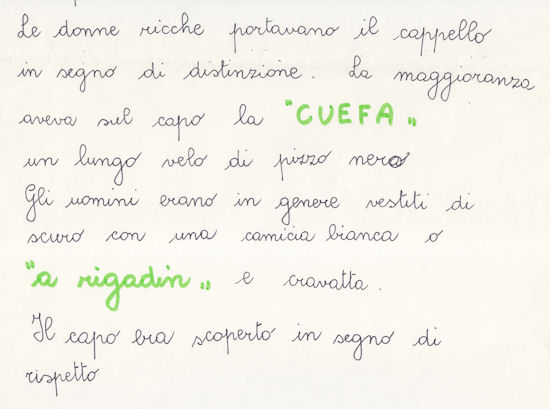 Le donne ricche portavano il cappello
in segno di distinzione. La maggioranza
aveva sul capo la "CUEFA"
un lungo velo di pizzo nero
Gli uomini erano in genere vestiti di
scuro con una camicia bianca o
"a rigadin" e cravatta.
Il capo era scoperto in segno di
rispetto